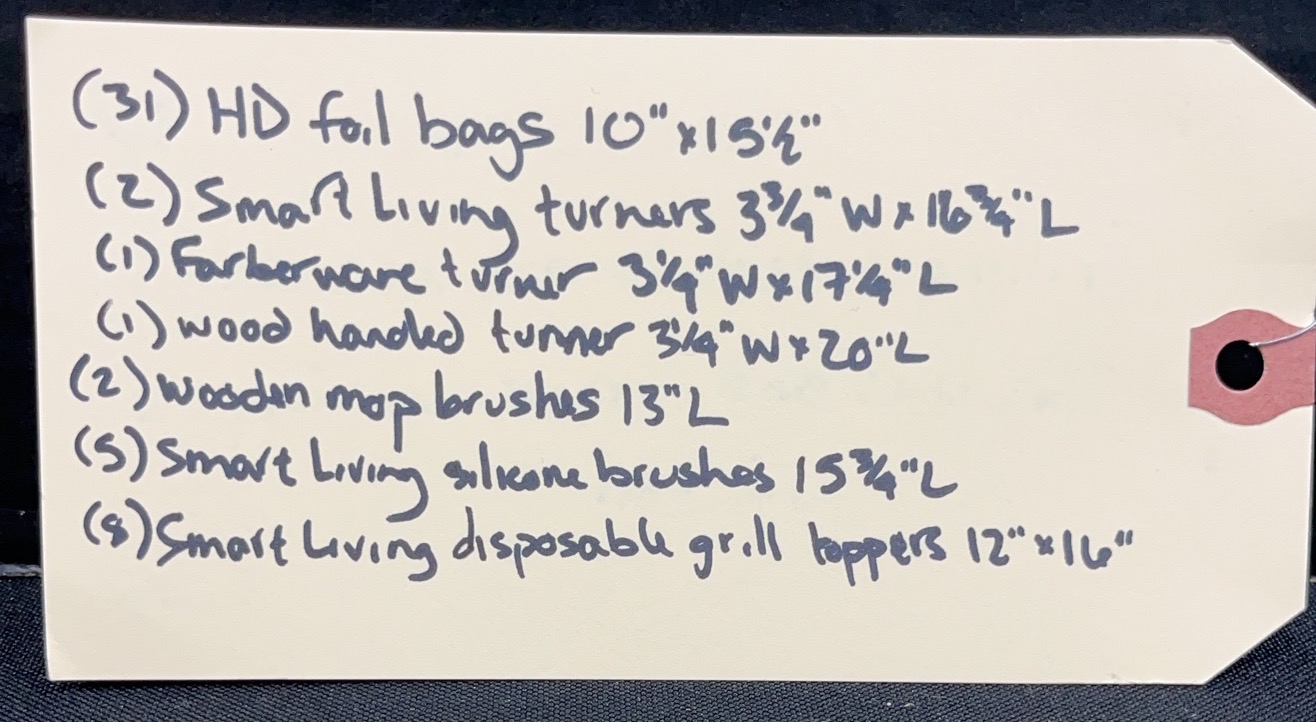 (31) HD foil bags 10" x 15½"
(2) Smart Living turners 3¾" W x 16¾" L
(1) Farberware turner 3¼" W x 17¼" L
(1) wood handled turner 3¼" W x 20" L
(2) wooden mop brushes 13" L
(5) Smart Living silicone brushes 15¾" L
(8) Smart Living disposable grill toppers 12" x 16"